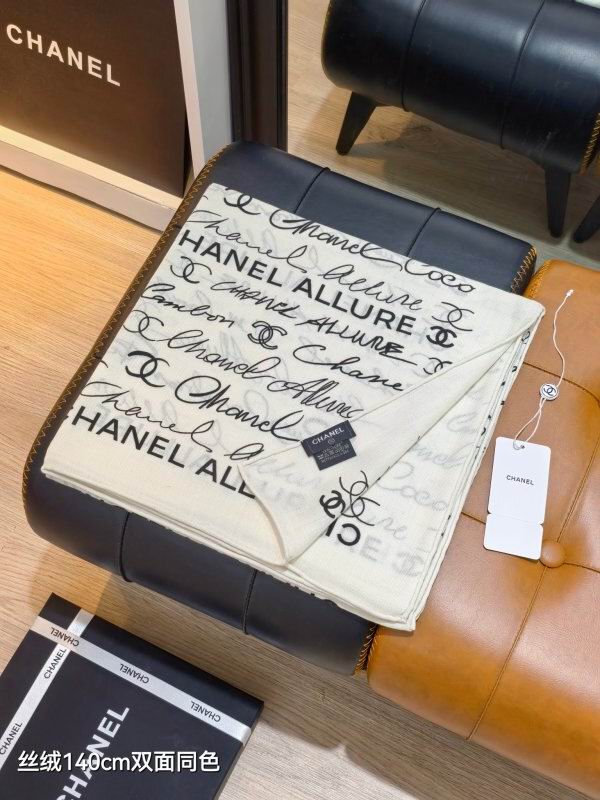 CHANEL
Chanel Coco
Chanel Allure
HANEL ALLURE
CHANEL ALLURE
Cambon Chane
Chanel Allure
Chanel
Chanel
HANEL ALL
CHANEL
CHANEL
CHANEL
CHANEL
CHANEL
CHANEL
CHANEL
CHANEL
丝绒140cm双面同色